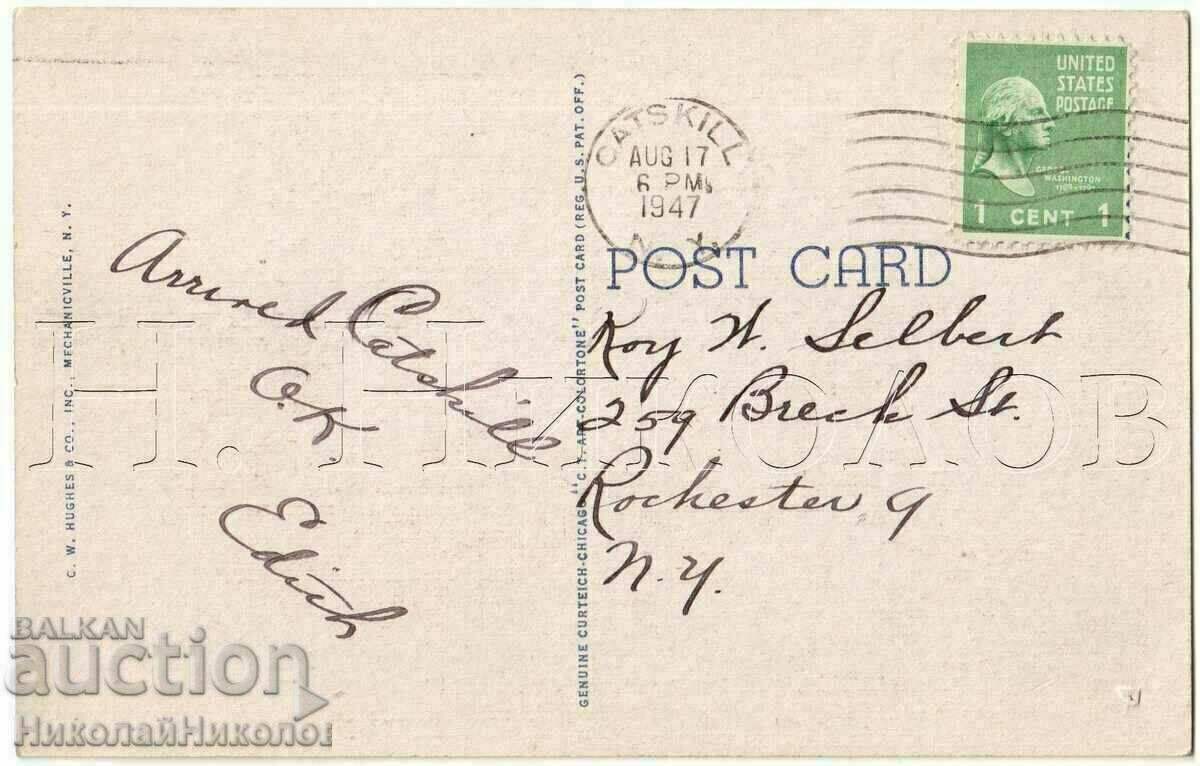 C. W. HUGHES & CO., INC., MECHANICVILLE, N. Y.
Arrived Catskill
O.K.
Edith
GENUINE CURTEICH-CHICAGO "C.T. ART-COLORTONE" POST CARD (REG. U.S. PAT. OFF.)
CATSKILL
AUG 17
6 PM
1947
N.Y.
UNITED
STATES
POSTAGE
GEORGE
WASHINGTON
1 CENT 1
POST CARD
Roy W. Selbert
259 Breck St.
Rochester 9
N.Y.
Н. НИКОЛОВ
BALKAN
auction
НиколайНиколов